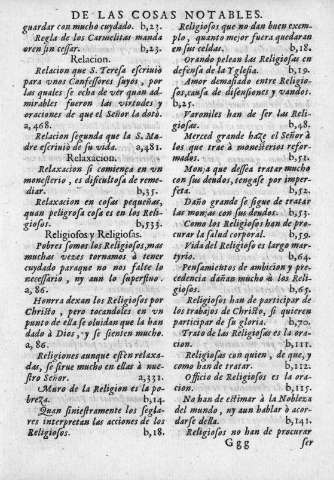 DE LAS COSAS NOTABLES.
guardar con mucho cuydado. b,23.
Regla de los Carmelitas manda
oren sin cessar. b,23.
Relacion.
Relacion que S. Teresa escriuio
para vnos Confessores suyos, por
las quales se echa de ver quan ad-
mirables fueron las virtudes y
oraciones de que el Señor la dotò.
a,468.
Relacion segunda que la S. Ma-
dre escriuio de su vida. a,481.
Relaxacion.
Relaxacion si comiença en vn
monesterio, es dificultosa de reme-
diar. b,35.
Relaxacion en cosas pequeñas,
quan peligrosa cosa es en los Reli-
giosos. b,533.
Religiosos y Religiosas.
Pobres somos los Religiosos, mas
muchas vezes tornamos à tener
cuydado paraque no nos falte lo
necessario, ny aun lo superfluo.
a,86.
Honrra dexan los Religiosos por
Christo, pero tocandoles en vn
punto de ella se oluidan que la han
dado à Dios, y se sienten mucho.
a, 86.
Religiones aunque estèn relaxa-
das, se sirue mucho en ellas à nue-
stro Señor. a,331.
Muro de la Religion es la po-
breza. b,14.
Quan siniestramente los segla-
res interpretan las acciones de los
Religiosos. b,18.
Religiosos que no dan buen exem-
plo, quanto mejor fuera quedaran
en sus celdas. b,18.
Grando pelean las Religiosas en
defensa de la Yglesia. b,19.
Amor demasiado entre Religio-
sos, causa de disensiones y vandos.
b,25.
Varoniles han de ser las Reli-
giosas. b,48.
Merced grande haze el Señor à
los que trae à monesterios refor-
mados. b,51.
Monja que dessea tratar mucho
con sus deudos, tengase por imper-
feta. b,52.
Daño grande se sigue de tratar
las monjas con sus deudos. b,53.
Como los Religiosos han de pro-
curar la salud corporal. b,59.
Vida del Religioso es largo mar-
tyrio. b,64.
Pensamientos de ambicion y pre-
cedencia dañan mucho à los Reli-
giosos. b,65.
Religiosos han de participar de
los trabajos de Christo, si quieren
participar de su gloria. b,70.
Trato de las Religiosas es la ora-
cion. b,111.
Religiosas con quien, de que, y
como han de tratar. b,112.
Officio de Religiosos es la ora-
cion. b,115.
No han de estimar à la Nobleza
del mundo, ny aun hablar ò acor-
darse della. b,141.
Religiosos no han de procurar
Ggg ser